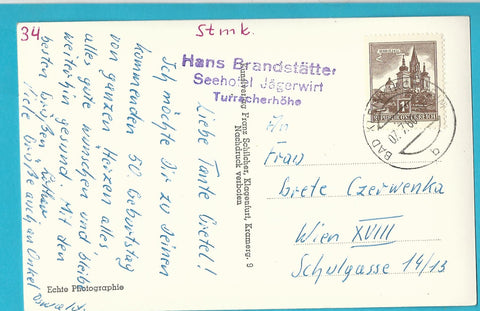 34
Stmk.
Hans Brandstätter
Seehotel Jägerwirt
Turracherhöhe
Liebe Tante Gretel!
Ich möchte Dir zu Deinem
kommenden 50. Geburtstag
von ganzen Herzen alles,
alles gute wünschen und bleib
weiterhin gesund. Mit den
besten Grüßen
Viele Grüße auch an Onkel
Echte Photographie
Kunstverlag Franz Schilcher, Klagenfurt, Kramerg. 9
Nachdruck verboten
REPUBLIK ÖSTERREICH
BAD
07.7.60
a
An
Frau
Grete Czerwenka
Wien XVIII
Schulgasse 14/13